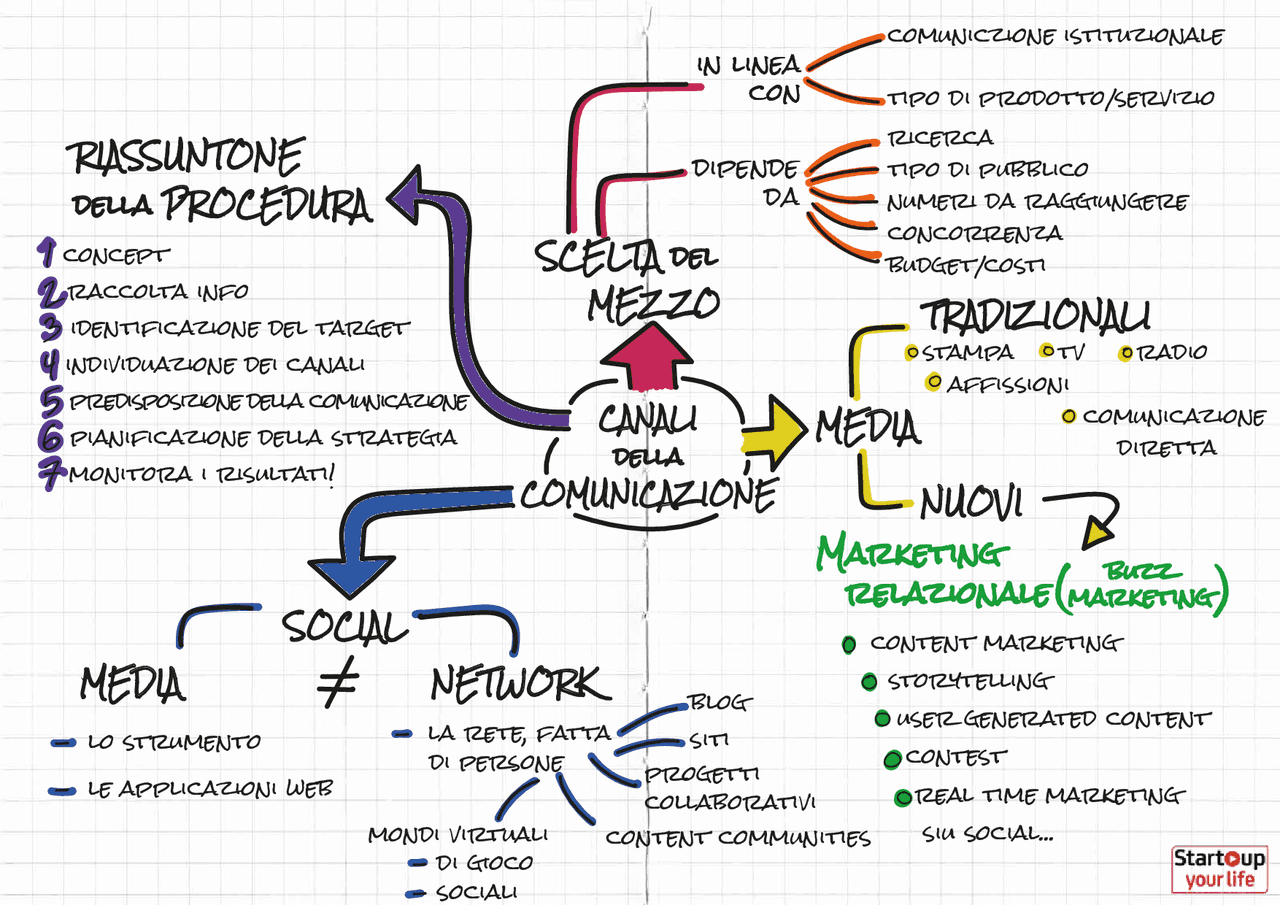 IN LINEA
CON
COMUNICZIONE ISTITUZIONALE
TIPO DI PRODOTTO/SERVIZIO
DIPENDE
DA
RICERCA
TIPO DI PUBBLICO
NUMERI DA RAGGIUNGERE
CONCORRENZA
BUDGET/COSTI
SCELTA DEL
MEZZO
RIASSUNTONE
DELLA PROCEDURA
1 CONCEPT
2 RACCOLTA INFO
3 IDENTIFICAZIONE DEL TARGET
4 INDIVIDUAZIONE DEI CANALI
5 PREDISPOSIZIONE DELLA COMUNICAZIONE
6 PIANIFICAZIONE DELLA STRATEGIA
7 MONITORA I RISULTATI!
CANALI
DELLA
COMUNICAZIONE
MEDIA
TRADIZIONALI
STAMPA TV RADIO
AFFISSIONI
COMUNICAZIONE
DIRETTA
NUOVI
MARKETING
RELAZIONALE (BUZZ
MARKETING)
CONTENT MARKETING
STORYTELLING
USER GENERATED CONTENT
CONTEST
REAL TIME MARKETING
SIU SOCIAL...
SOCIAL
MEDIA ≠ NETWORK
LO STRUMENTO
LE APPLICAZIONI WEB
LA RETE, FATTA
DI PERSONE
BLOG
SITI
PROGETTI
COLLABORATIVI
CONTENT COMMUNITIES
MONDI VIRTUALI
DI GIOCO
SOCIALI
Start up
your life